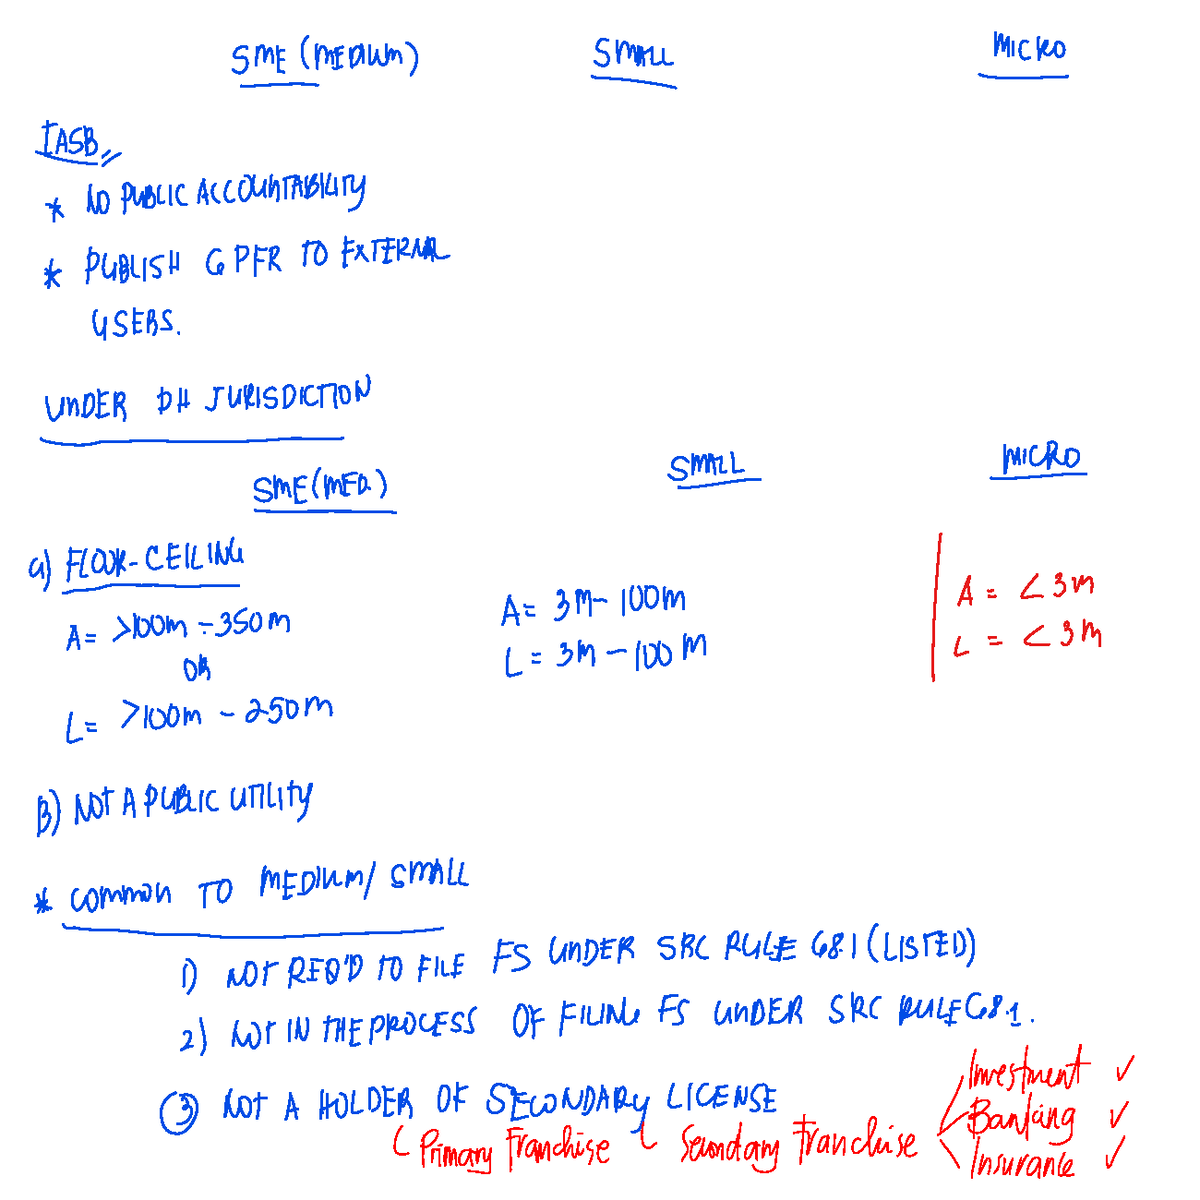 SME (MEDIUM) SMALL MICRO
IASB
* NO PUBLIC ACCOUNTABILITY
* PUBLISH GPFR TO EXTERNAL
USERS.
UNDER PH JURISDICTION
SME (MED.) SMALL MICRO
a) FLOOR-CEILING
A= >100m - 350m A= 3M- 100m A = <3m
OR
L= >100m - 250m L= 3M - 100M L = <3m
B) NOT A PUBLIC UTILITY
* COMMON TO MEDIUM/ SMALL
1) NOT REQ'D TO FILE FS UNDER SRC RULE 68.1 (LISTED)
2) NOT IN THE PROCESS OF FILING FS UNDER SRC RULE 68.1.
3 NOT A HOLDER OF SECONDARY LICENSE
Primary Franchise Secondary Franchise
Investment ✓
Banking ✓
Insurance ✓